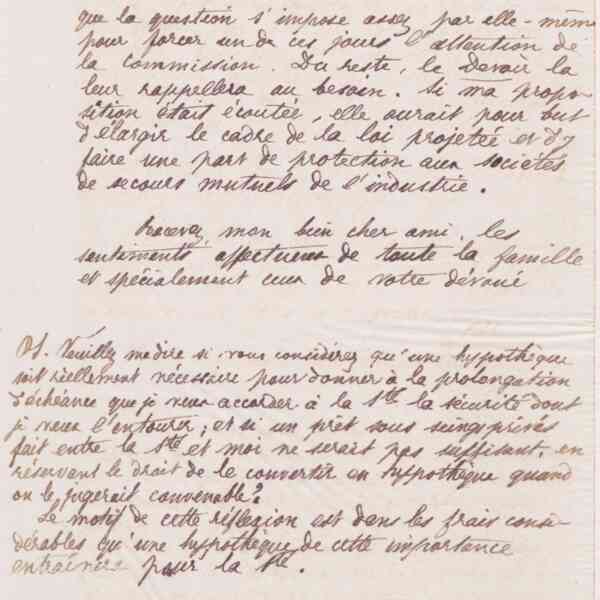 que la question s'impose assez par elle-même
pour forcer un de ces jours l'attention de
la Commission. Du reste, le Devoir la
leur rappellera au besoin. Si ma propo-
sition était écoutée, elle aurait pour but
d'élargir le cadre de la loi projetée et d'y
faire une part de protection aux sociétés
de secours mutuels de l'industrie.
Recevez, mon bien cher ami, les
sentiments affectueux de toute la famille
et spécialement ceux de votre dévoué
PS. Veuillez me dire si vous considérez qu'une hypothèque
soit réellement nécessaire pour donner à la prolongation
d'échéance que je veux accorder à la Sté la sécurité dont
je veux l'entourer; et si un prêt sous seings privés
fait entre la Sté et moi ne serait pas suffisant, en
réservant le droit de le convertir en hypothèque quand
on le jugerait convenable?
Le motif de cette réflexion est dans les frais consi-
dérables qu'une hypothèque de cette importance
entraînera pour la Sté.